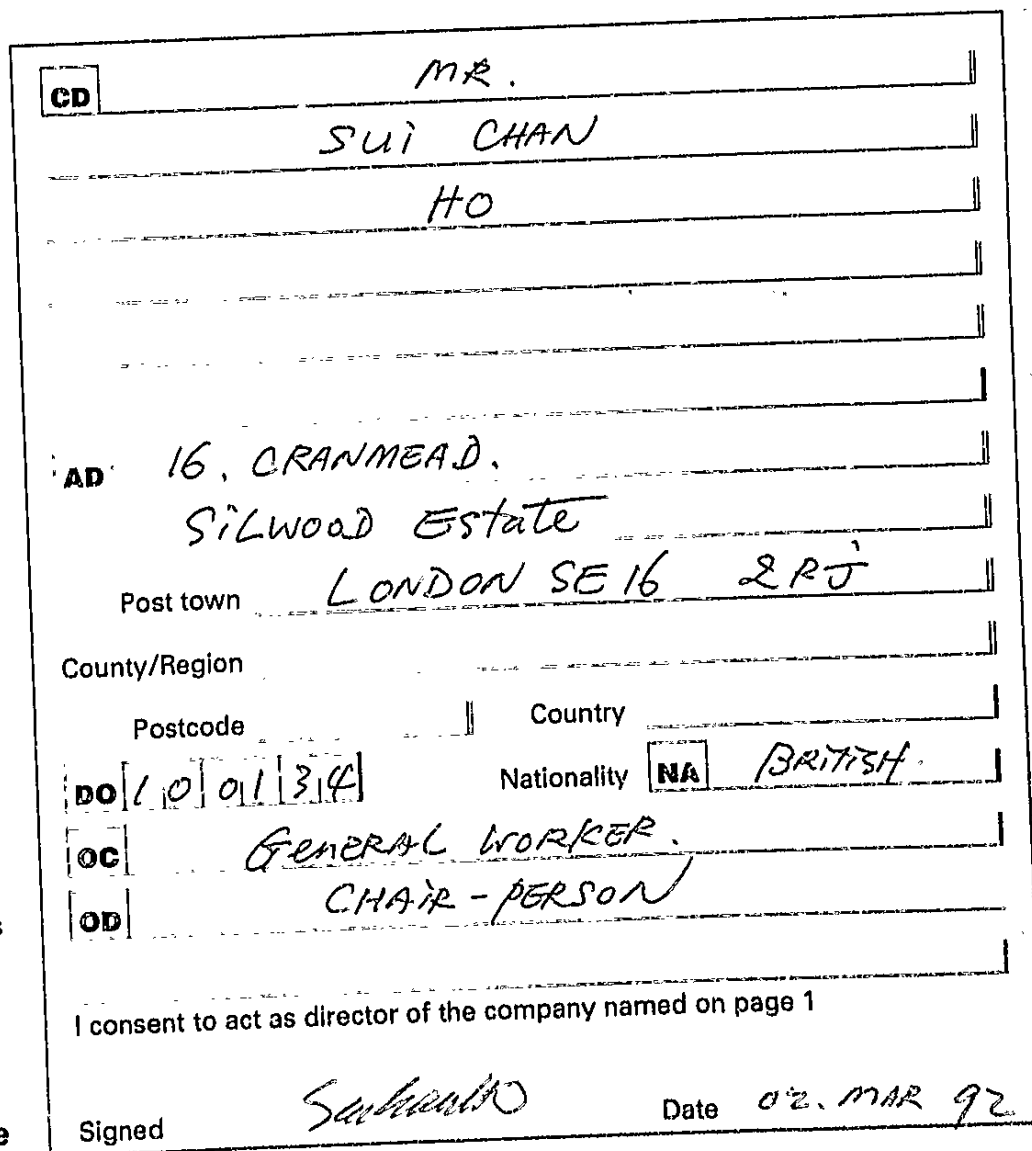 CD MR.
SUi CHAN
HO
AD 16, CRANMEAD.
SiLWOOD EState
Post town LONDON SE 16 2RJ
County/Region
Postcode Country
DO 10 01 34 Nationality NA BRiTiSH.
OC GENERAL WORKER.
OD CHAiR-PERSON
s
I consent to act as director of the company named on page 1
e Signed Date 02. MAR 92